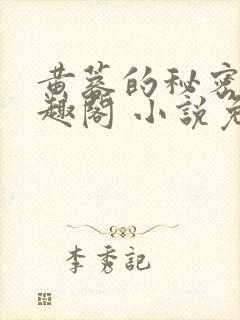 黄墓的秘密
趣阁 小说免
李秀記